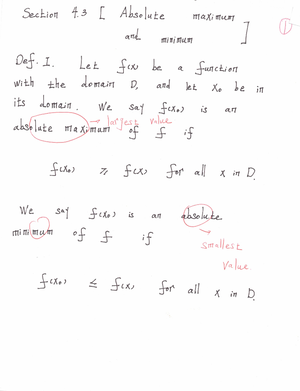 Section 4.3 [ Absolute maximum
and minimum ]
①
Def. 1. Let f(x) be a function
with the domain D, and let x₀ be in
its domain. We say f(x₀) is an
absolute maximum of f if
→ largest value
f(x₀) ≥ f(x) for all x in D.
We say f(x₀) is an absolute
minimum of f if
→ smallest
value
f(x₀) ≤ f(x) for all x in D.